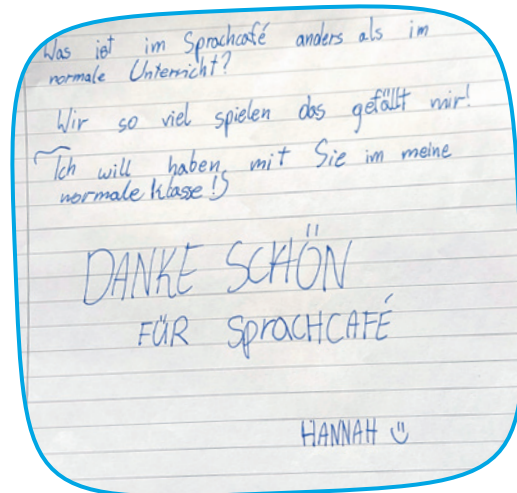 Was ist im Sprachcafé anders als im
normale Unterricht?
Wir so viel spielen das gefällt mir!
Ich will haben mit Sie im meine
normale klasse!
DANKE SCHÖN
FÜR SprACHCAFÉ
HANNAH